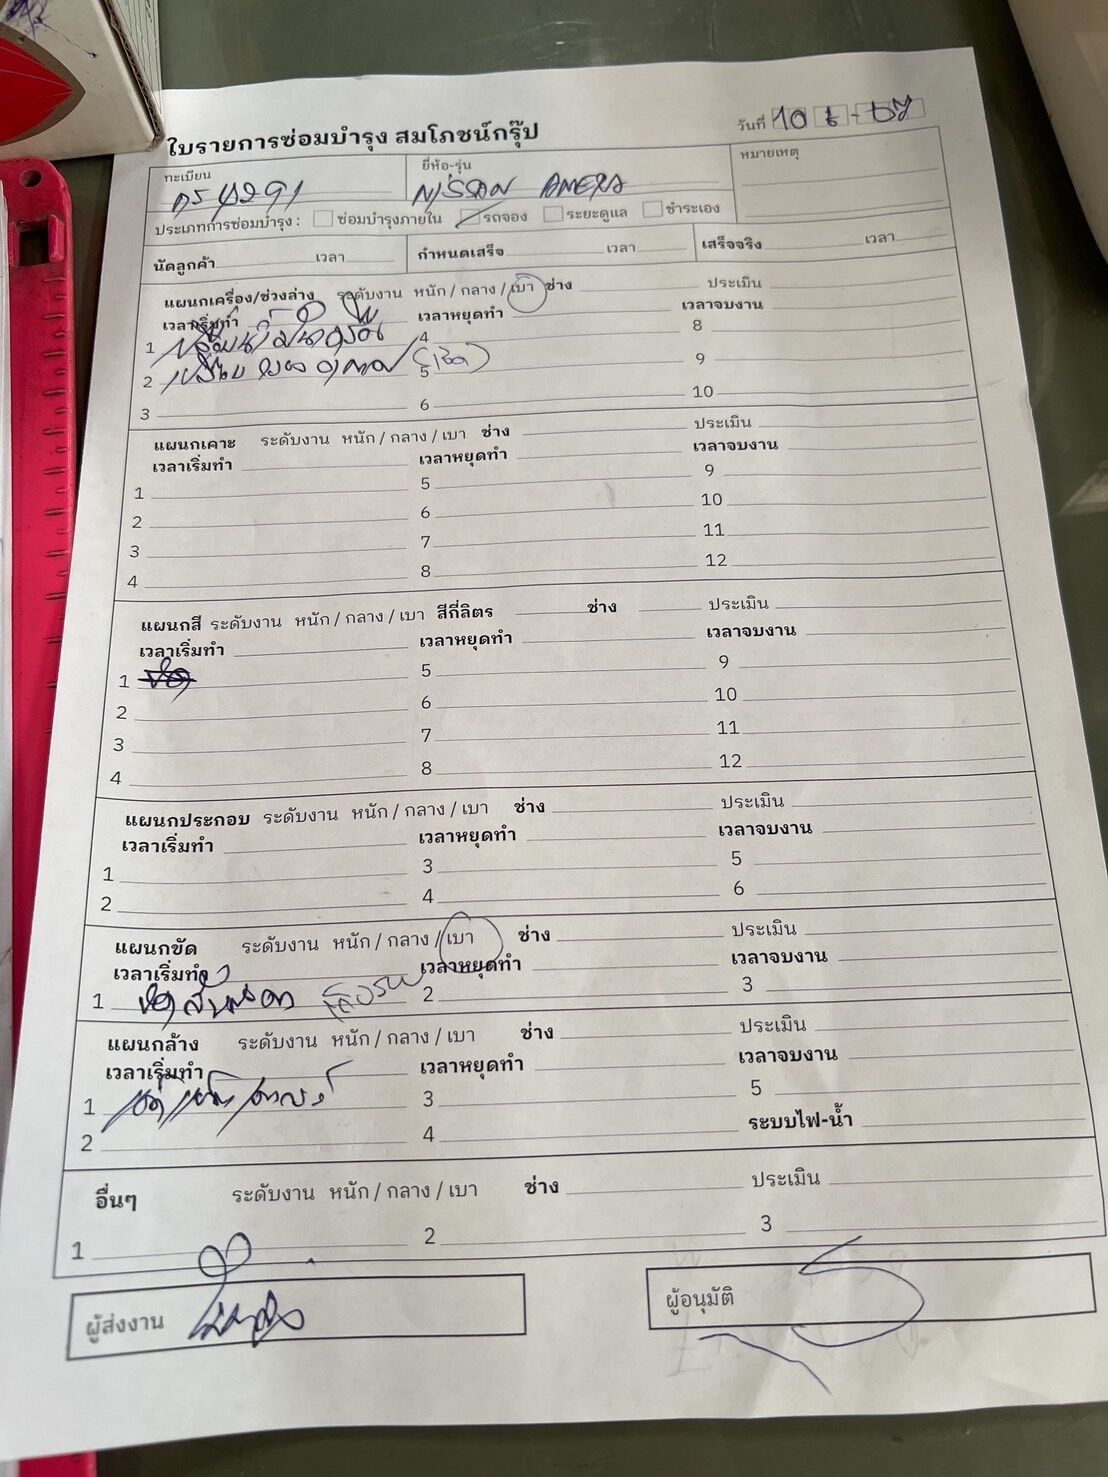 ใบรายการซ่อมบำรุง สมโภชน์กรุ๊ป
วันที่ 10
ทะเบียน 4291
ยี่ห้อ-รุ่น NISSAN AMERA
หมายเหตุ
ประเภทการซ่อมบำรุง : ซ่อมบำรุงภายใน รถจอง ระยะดูแล ชำระเอง
นัดลูกค้า เวลา กำหนดเสร็จ เวลา เสร็จจริง เวลา
แผนกเครื่อง/ช่วงล่าง ระดับงาน หนัก / กลาง / เบา ช่าง ประเมิน
เวลาเริ่มทำ เวลาหยุดทำ เวลาจบงาน
1 4 8
2 5 9
3 6 10
แผนกเคาะ ระดับงาน หนัก / กลาง / เบา ช่าง ประเมิน
เวลาเริ่มทำ เวลาหยุดทำ เวลาจบงาน
1 5 9
2 6 10
3 7 11
4 8 12
แผนกสี ระดับงาน หนัก / กลาง / เบา สีกี่ลิตร ช่าง ประเมิน
เวลาเริ่มทำ เวลาหยุดทำ เวลาจบงาน
1 5 9
2 6 10
3 7 11
4 8 12
แผนกประกอบ ระดับงาน หนัก / กลาง / เบา ช่าง ประเมิน
เวลาเริ่มทำ เวลาหยุดทำ เวลาจบงาน
1 3 5
2 4 6
แผนกขัด ระดับงาน หนัก / กลาง / เบา ช่าง ประเมิน
เวลาเริ่มทำ เวลาหยุดทำ เวลาจบงาน
1 2 3
แผนกล้าง ระดับงาน หนัก / กลาง / เบา ช่าง ประเมิน
เวลาเริ่มทำ เวลาหยุดทำ เวลาจบงาน
1 3 5
2 4 ระบบไฟ-น้ำ
อื่นๆ ระดับงาน หนัก / กลาง / เบา ช่าง ประเมิน
1 2 3
ผู้ส่งงาน ผู้อนุมัติ